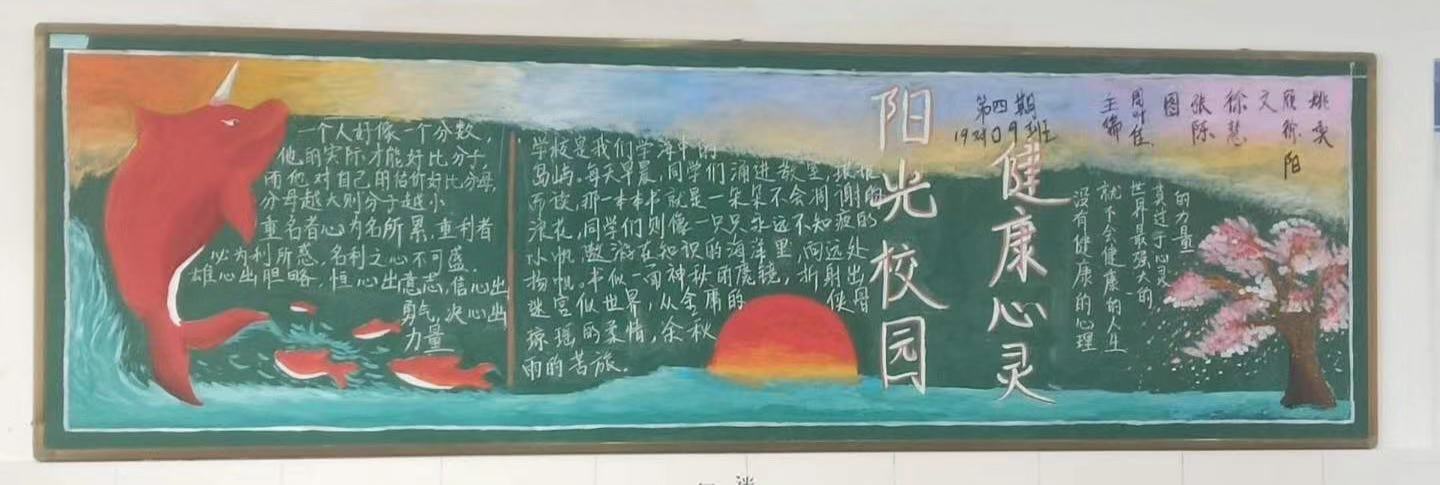 一个人好像一个分数,
他的实际才能好比分子,
而他对自己的估价好比分母,
分母越大则分子越小.
重名者心为名所累,重利者
必为利所惑,名利之心不可盛.
雄心出胆略,恒心出意志,信心出
勇气,决心出
力量
学校是我们学海中的
岛屿。每天早晨,同学们涌进教室,琅琅
而读,那一本本书就是一朵朵不会凋谢的
浪花,同学们则像一只只永远不知疲的
小帆,遨游在知识的海洋里,向远处
扬帆。书似一面神秋的魔镜,折射出
迷宫似世界,从金庸的侠骨
琼瑶的柔情,余秋
雨的苦旅.
阳光校园
健康心灵
第四期
主编
周叶佳
图
张陈
徐慧
文
徐阳
姚
的力量
莫过于心灵
世界最强大的
就不会健康的人生
没有健康的心理